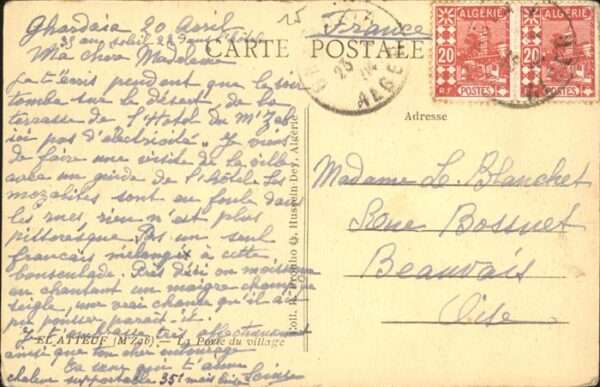 Ghardaia 20 Avril
Ma chère Madeleine
Je t'écris pendant que le soir
tombe sur le désert, de la
terrasse de l'Hotel du M'Zab
ici pas d'électricité. Je viens
de faire une visite de la ville
avec un guide de l'hôtel les
mozabites sont en foule dans
les rues, rien n'est plus
pittoresque. Pas un seul
français mélangé à cette
bousculade. Près d'ici on moissonne
en chantant un maigre champ de
seigle, une vraie chance qu'il ait
pu pousser parait-il.
Je t'embrasse très affectueusement
ainsi que ton cher entourage
Ta sœur qui t'aime
chaleur supportable 35° mais
EL ATTEUF (M'Zab) — La Porte du village
CARTE POSTALE
France
ALGERIE
20
R.F. POSTES
ALGERIE
20
POSTES
ALGER
Coll. R. Prouho G. Hussein Dey, Algérie
Adresse
Madame Le Blanchet
Rue Bossuet
Beauvais
Oise